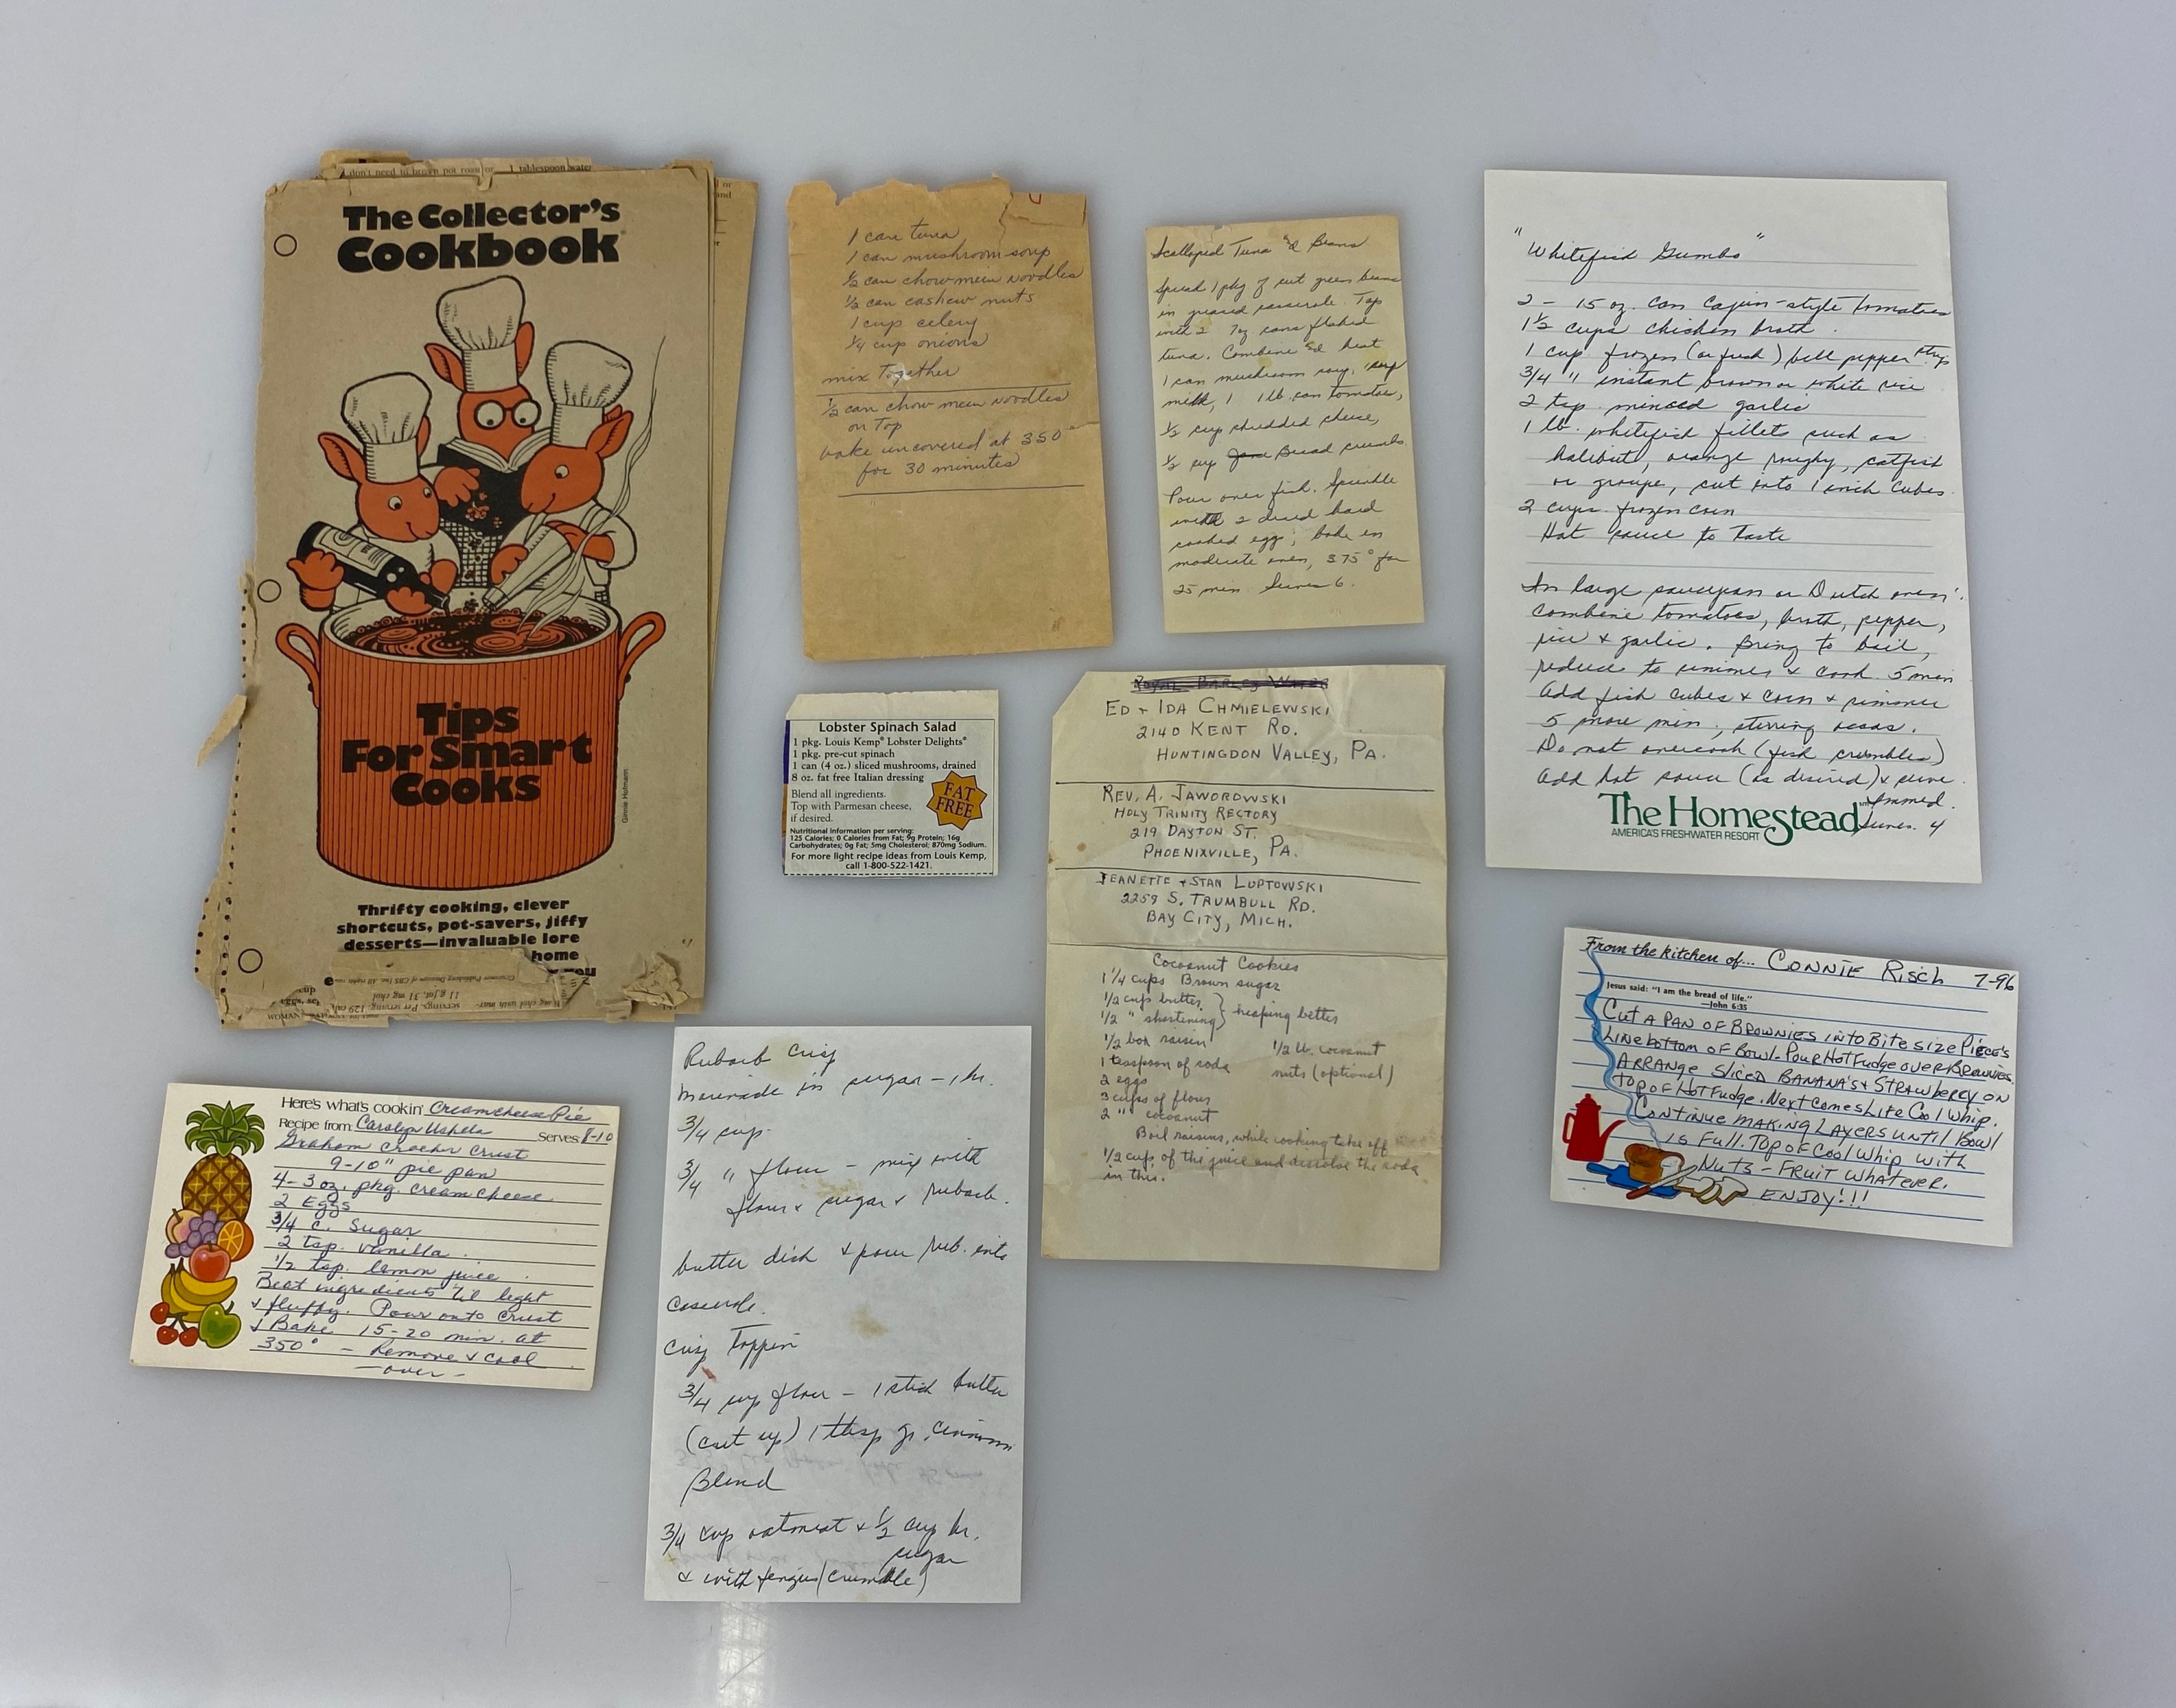 don't need to brown pot roast or
1 tablespoon water
The Collector's
Cookbook
Tips
For Smart
Cooks
Ginnie Hofmann
Thrifty cooking, clever
shortcuts, pot-savers, jiffy
desserts—invaluable lore
home
you
WOMAN
1 can tuna
1 can mushroom soup
1/2 can chow mein noodles
1/2 can cashew nuts
1 cup celery
1/4 cup onions
mix together
1/2 can chow mein noodles
on Top
bake uncovered at 350°
for 30 minutes
Scalloped Tuna & Beans
Spread 1 pkg of cut green beans
in greased casserole. Top
with 2 7oz cans flaked
tuna. Combine & heat
1 can mushroom soup, 1 cup
milk, 1 1 lb can tomatoes,
1/2 cup shredded cheese,
1/2 cup Bread crumbs
Pour over fish. Sprinkle
with 2 diced hard
cooked egg; bake in
moderate oven, 375° for
25 min Serves 6.
"Whitefish Gumbo"
2 - 15 oz. can cajun-style tomatoes
1 1/2 cups chicken broth.
1 cup frozen (or fresh) bell pepper strips
3/4 " instant brown or white rice
2 tsp minced garlic
1 lb. whitefish fillets such as
halibut, orange roughy, catfish
or groupe, cut into 1 inch cubes.
2 cups frozen corn
Hot sauce to taste
In large saucepan or Dutch oven
combine tomatoes, broth, pepper,
rice & garlic. Bring to boil,
reduce to simmer & cook 5 min
Add fish cubes & corn & simmer
5 more min, stirring occas.
Do not overcook (fish crumbles)
Add hot sauce (as desired) & serve
immed.
The Homestead
AMERICA'S FRESHWATER RESORT
Serves. 4
Lobster Spinach Salad
1 pkg. Louis Kemp® Lobster Delights®
1 pkg. pre-cut spinach
1 can (4 oz.) sliced mushrooms, drained
8 oz. fat free Italian dressing
Blend all ingredients.
Top with Parmesan cheese,
if desired.
FAT
FREE
Nutritional information per serving:
125 Calories; 0 Calories from Fat; 9g Protein; 16g
Carbohydrates; 0g Fat; 5mg Cholesterol; 870mg Sodium.
For more light recipe ideas from Louis Kemp,
call 1-800-522-1421.
Royal Barley Water
ED + IDA CHMIELEWSKI
2140 KENT RD.
HUNTINGDON VALLEY, PA.
REV. A. JAWOROWSKI
HOLY TRINITY RECTORY
219 DAYTON ST.
PHOENIXVILLE, PA.
JEANETTE + STAN LUPTOWSKI
2259 S. TRUMBULL RD.
BAY CITY, MICH.
Cocoanut Cookies
1 1/4 cups Brown sugar
1/2 cup butter } heaping better
1/2 " shortening
1/2 box raisin 1/2 lb. cocoanut
1 teaspoon of soda nuts (optional)
2 eggs
3 cups of flour
2 " cocoanut
Boil raisins, while cooking take off
1/2 cup of the juice and dissolve the soda
in this.
From the kitchen of... CONNIE RISCH 7-96
Jesus said: "I am the bread of life."
—John 6:35
CUT A PAN OF BROWNIES INTO BITE SIZE PIECE'S
LINE bottom OF BOWL-POUR HOT FUDGE OVER BROWNIES.
ARRANGE SLICED BANANA'S & STRAWBERRY ON
TOP OF HOT FUDGE. NEXT COMES LITE COOL WHIP.
CONTINUE MAKING LAYERS UNTIL BOWL
IS FULL. TOP OF COOL WHIP WITH
NUTS - FRUIT WHATEVER.
ENJOY!!!
Here's what's cookin' Cream cheese Pie
Recipe from: Carolyn Serves 8-10
Graham Cracker Crust
9-10" pie pan
4-3 oz. pkg. cream cheese
2 Eggs
3/4 C. Sugar
2 tsp. vanilla
1/2 tsp. lemon juice
Beat ingredients 'til light
& fluffy. Pour onto Crust
& Bake 15-20 min. at
350° - Remove & cool
-over-
Rubarb Crisp
Marinade in sugar - 1 hr.
3/4 cup
3/4 " flour - mix with
flour & sugar & rubarb.
butter dish & pour rub. into
Casserole.
Crisp Toppin
3/4 cup flour - 1 stick butter
(cut up) 1 tbsp gr. cinnamon
Blend
3/4 cup oatmeat & 1/2 cup br.
sugar
& with fengus (crumble)